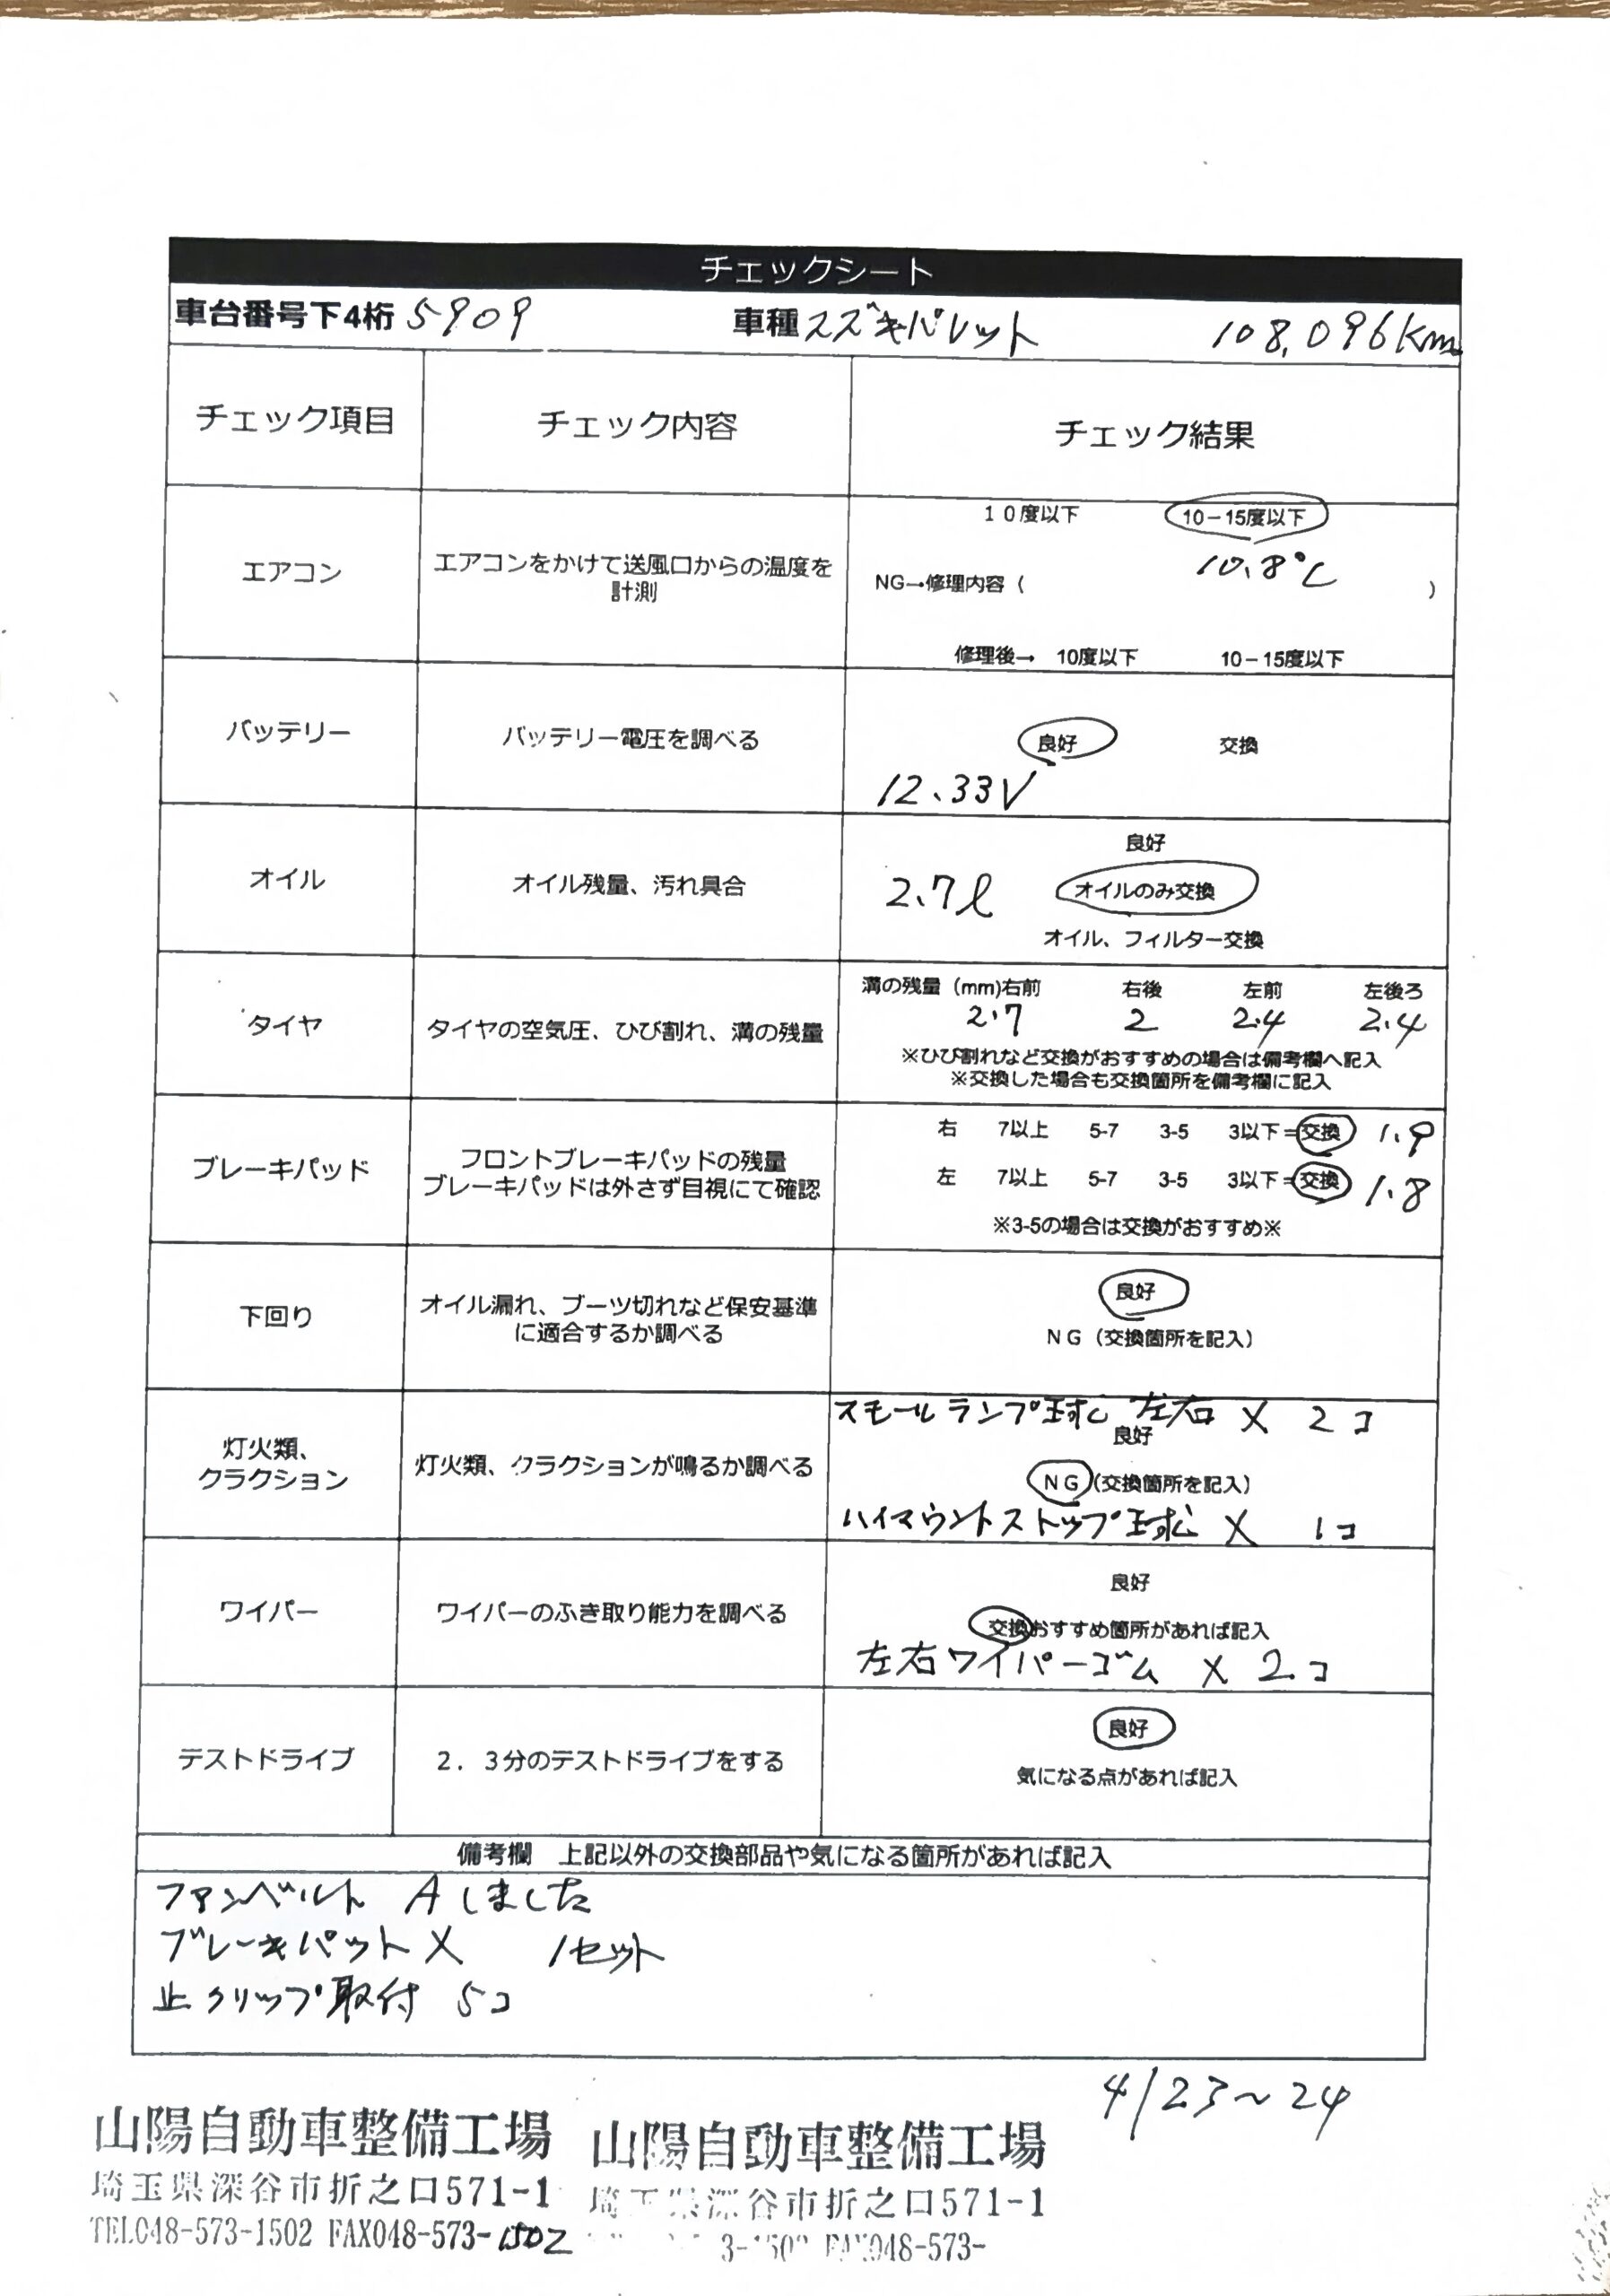 チェックシート
車台番号下4桁 5909 車種 スズキパレット 108,096km
チェック項目 チェック内容 チェック結果
エアコン
エアコンをかけて送風口からの温度を
計測
10度以下 10-15度以下
10.8℃
NG→修理内容 ( )
修理後→ 10度以下 10-15度以下
バッテリー
バッテリー電圧を調べる
良好 交換
12.33V
オイル
オイル残量、汚れ具合
良好
2.7ℓ オイルのみ交換
オイル、フィルター交換
タイヤ
タイヤの空気圧、ひび割れ、溝の残量
溝の残量 (mm)右前 右後 左前 左後ろ
2.7 2 2.4 2.4
※ひび割れなど交換がおすすめの場合は備考欄へ記入
※交換した場合も交換箇所を備考欄に記入
ブレーキパッド
フロントブレーキパッドの残量
ブレーキパッドは外さず目視にて確認
右 7以上 5-7 3-5 3以下=交換 1.9
左 7以上 5-7 3-5 3以下=交換 1.8
※3-5の場合は交換がおすすめ※
下回り
オイル漏れ、ブーツ切れなど保安基準
に適合するか調べる
良好
NG (交換箇所を記入)
灯火類、
クラクション
灯火類、クラクションが鳴るか調べる
スモールランプ球 左右 X 2コ
良好
NG (交換箇所を記入)
ハイマウントストップ球 X 1コ
ワイパー
ワイパーのふき取り能力を調べる
良好
交換おすすめ箇所があれば記入
左右ワイパーゴム X 2コ
テストドライブ
2.3分のテストドライブをする
良好
気になる点があれば記入
備考欄 上記以外の交換部品や気になる箇所があれば記入
ファンベルト Aしました
ブレーキパット X 1セット
止クリップ取付 5コ
4/23~24
山陽自動車整備工場
埼玉県深谷市折之口571-1
TEL048-573-1502 FAX048-573-1502
山陽自動車整備工場
深谷市折之口571-1
048-573-